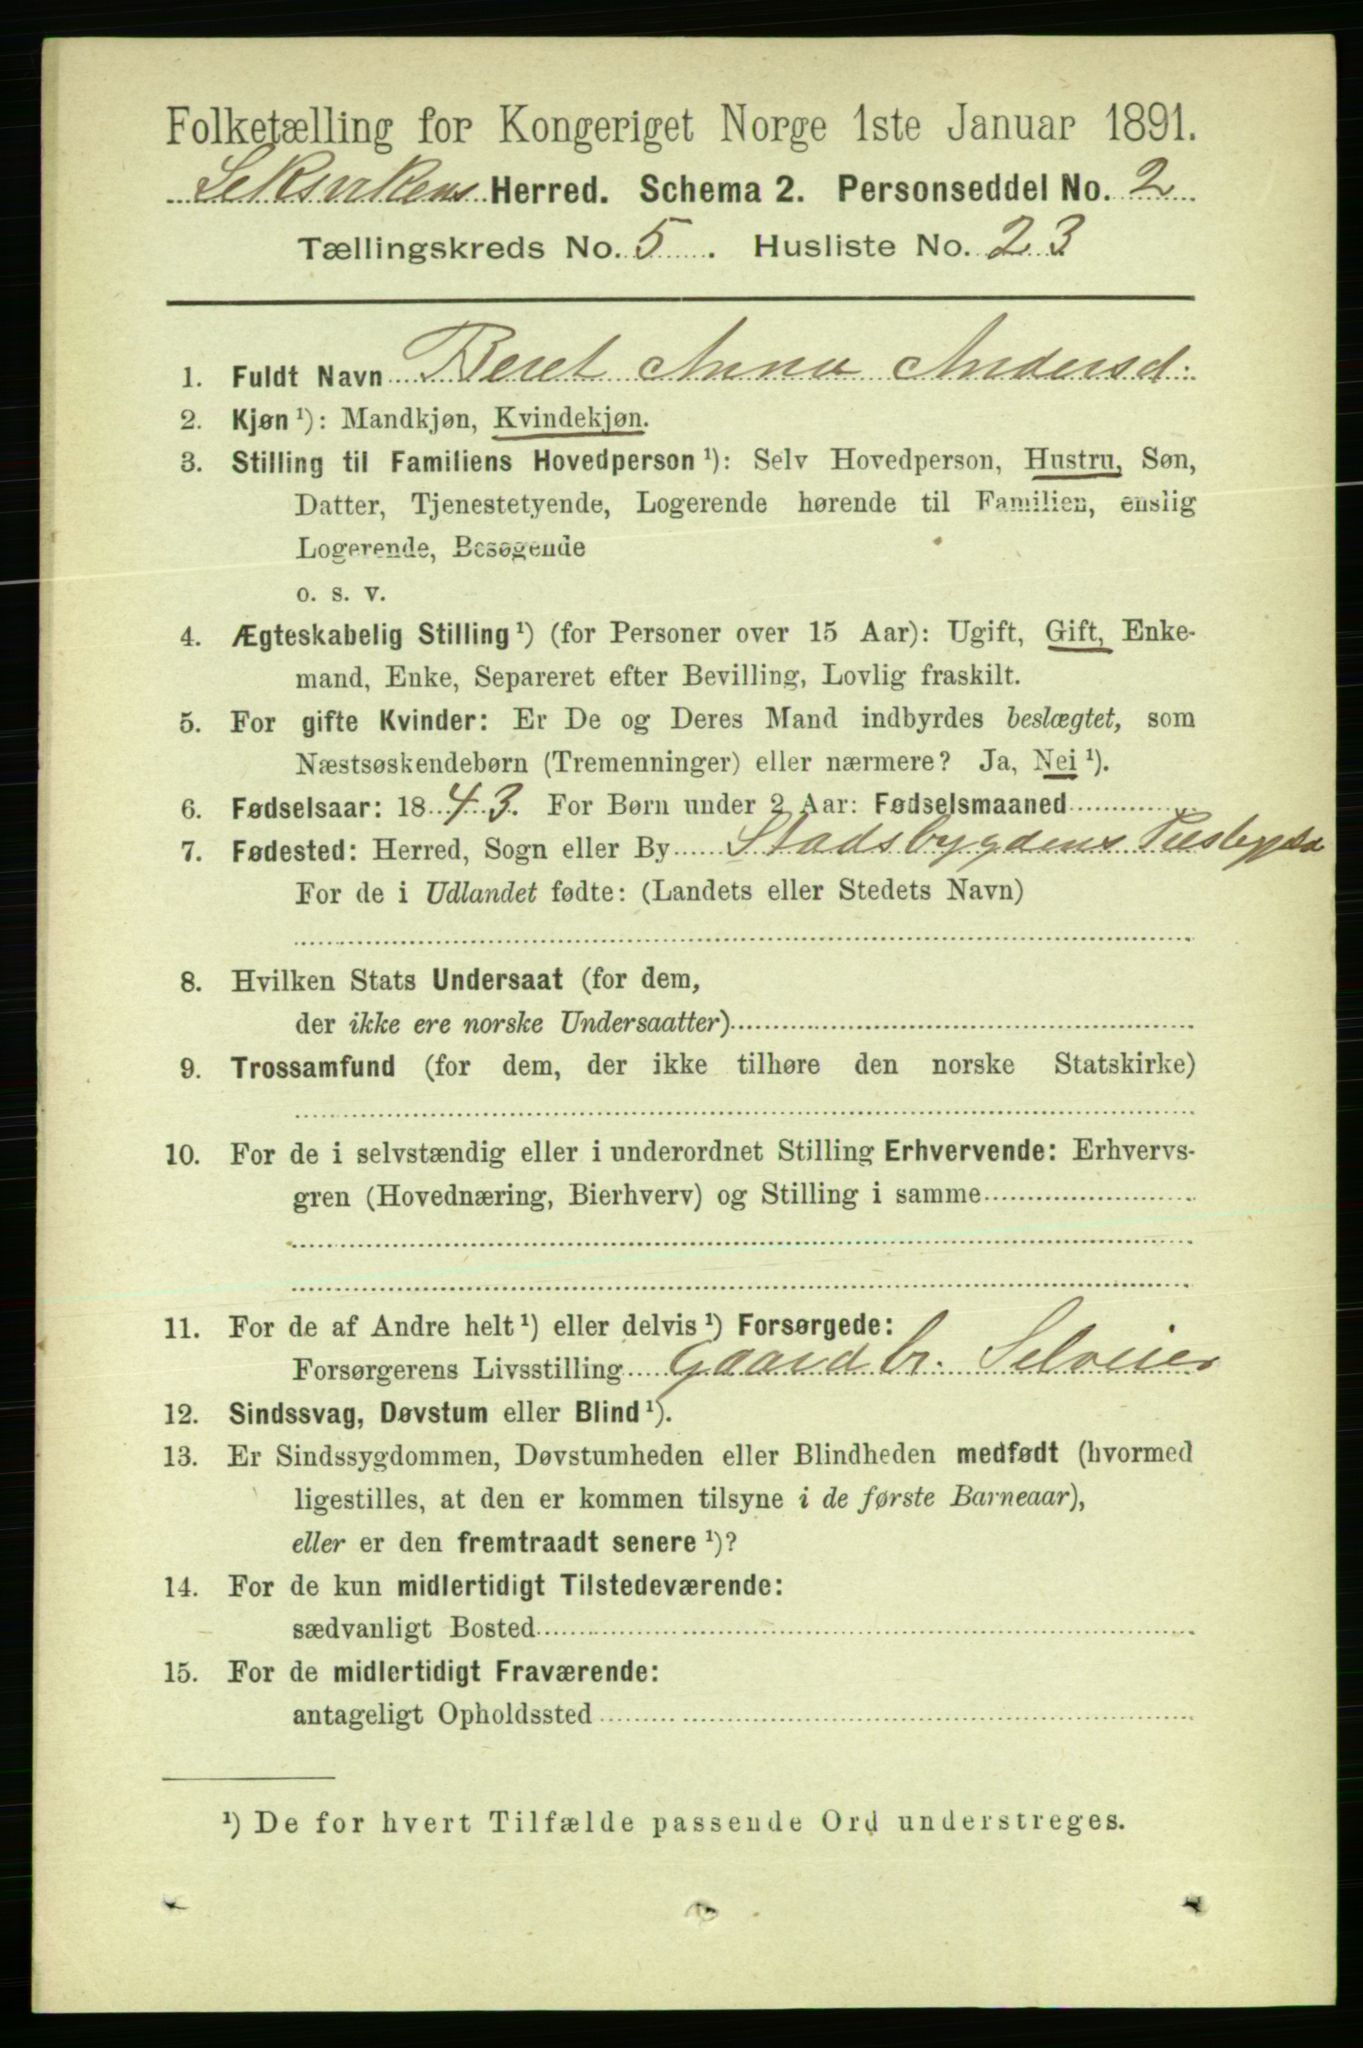 Folketælling for Kongeriget Norge 1ste Januar 1891.
Leksvikens Herred. Schema 2. Personseddel No. 2
Tællingskreds No. 5. Husliste No. 23
1. Fuldt Navn Beret Anna Andersd.
2. Kjøn ¹): Mandkjøn, Kvindekjøn.
3. Stilling til Familiens Hovedperson ¹): Selv Hovedperson, Hustru, Søn,
Datter, Tjenestetyende, Logerende hørende til Familien, enslig
Logerende, Besøgende
o. s. v.
4. Ægteskabelig Stilling ¹) (for Personer over 15 Aar): Ugift, Gift, Enke-
mand, Enke, Separeret efter Bevilling, Lovlig fraskilt.
5. For gifte Kvinder: Er De og Deres Mand indbyrdes beslægtet, som
Næstsøskendebørn (Tremenninger) eller nærmere? Ja, Nei ¹).
6. Fødselsaar: 1843. For Børn under 2 Aar: Fødselsmaaned
7. Fødested: Herred, Sogn eller By Stadsbygdens
For de i Udlandet fødte: (Landets eller Stedets Navn)
8. Hvilken Stats Undersaat (for dem,
der ikke ere norske Undersaatter)
9. Trossamfund (for dem, der ikke tilhøre den norske Statskirke)
10. For de i selvstændig eller i underordnet Stilling Erhvervende: Erhvervs-
gren (Hovednæring, Bierhverv) og Stilling i samme
11. For de af Andre helt ¹) eller delvis ¹) Forsørgede:
Forsørgerens Livsstilling Gaardbr. Selveier
12. Sindssvag, Døvstum eller Blind ¹).
13. Er Sindssygdommen, Døvstumheden eller Blindheden medfødt (hvormed
ligestilles, at den er kommen tilsyne i de første Barneaar),
eller er den fremtraadt senere ¹)?
14. For de kun midlertidigt Tilstedeværende:
sædvanligt Bosted
15. For de midlertidigt Fraværende:
antageligt Opholdssted
¹) De for hvert Tilfælde passende Ord understreges.